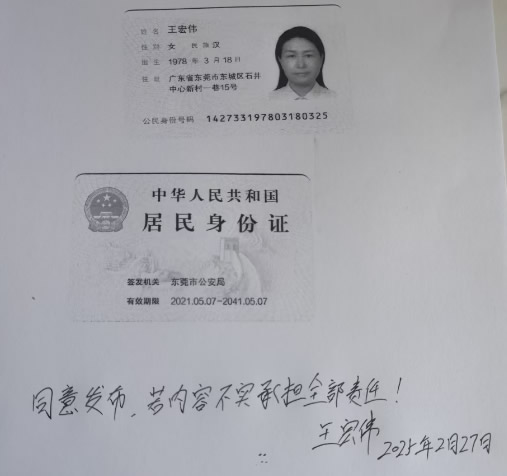 姓名 王宏伟
性别 女 民族 汉
出生 1978 年 3 月 18 日
住址 广东省东莞市东城区石井
中心新村一巷15号
公民身份号码 142733197803180325
中华人民共和国
居民身份证
签发机关 东莞市公安局
有效期限 2021.05.07-2041.05.07
同意发布，若内容不实承担全部责任！
王宏伟 2025年2月27日